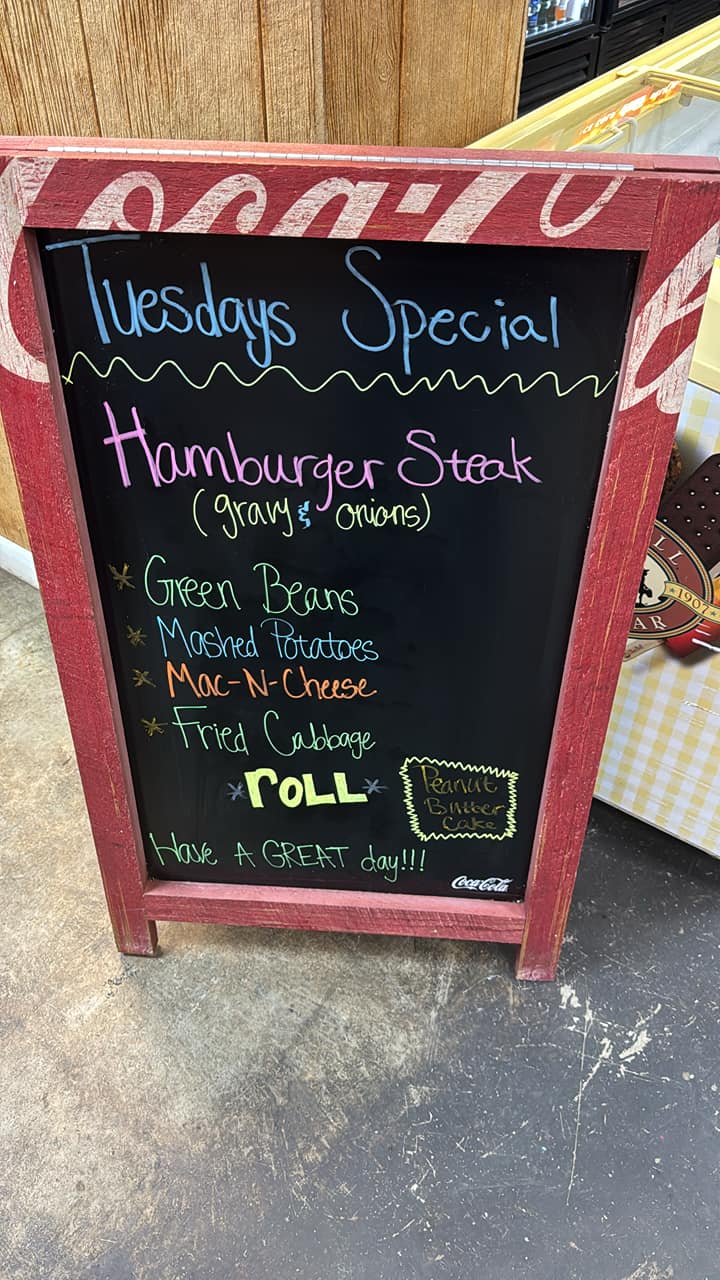 Coca-Co
Tuesdays Special
Hamburger Steak
(gravy & onions)
* Green Beans
* Mashed Potatoes
* Mac-N-Cheese
* Fried Cabbage
*ROLL*
Peanut
Butter
Cake
Have A GREAT day!!!
Coca-Cola
LL
1907
AR